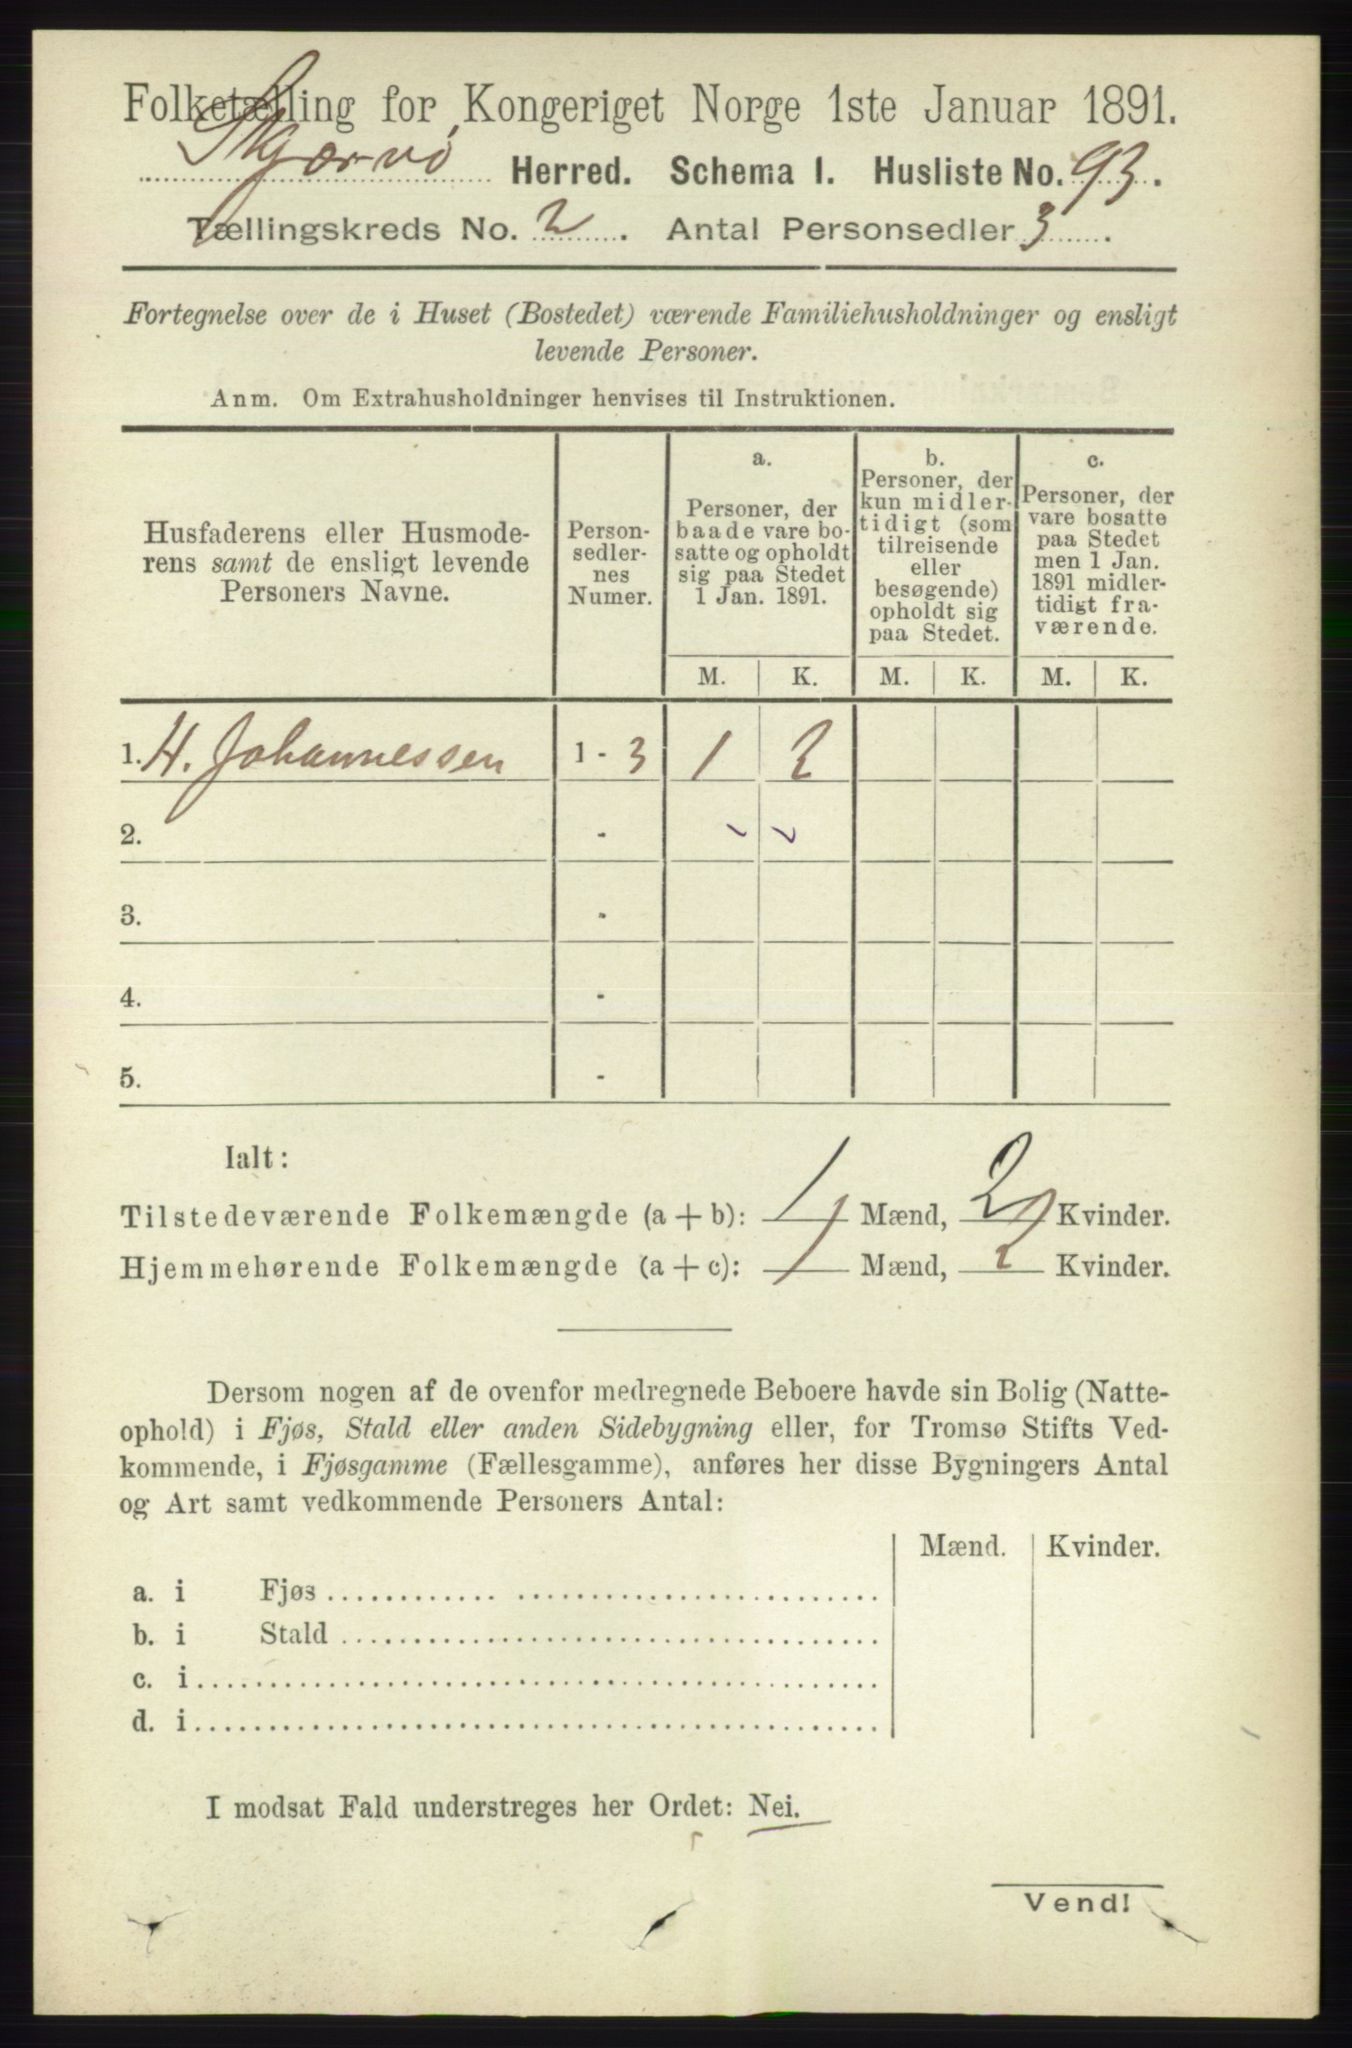 Folketælling for Kongeriget Norge 1ste Januar 1891.
Skjærvø Herred. Schema 1. Husliste No. 93.
Tællingskreds No. 2. Antal Personsedler 3.
Fortegnelse over de i Huset (Bostedet) værende Familiehusholdninger og ensligt
levende Personer.
Anm. Om Extrahusholdninger henvises til Instruktionen.
Husfaderens eller Husmode-
rens samt de ensligt levende
Personers Navne.
Person-
sedler-
nes
Numer.
a.
Personer, der
baade vare bo-
satte og opholdt
sig paa Stedet
1 Jan. 1891.
b.
Personer, der
kun midler-
tidigt (som
tilreisende
eller
besøgende)
opholdt sig
paa Stedet.
c.
Personer, der
vare bosatte
paa Stedet
men 1 Jan.
1891 midler-
tidigt fra-
værende.
M. K. M. K. M. K.
1. H. Johannessen 1 - 3 1 2
2. -
3. -
4. -
5. -
Ialt:
Tilstedeværende Folkemængde (a + b): 1 Mænd, 2 Kvinder.
Hjemmehørende Folkemængde (a + c): 1 Mænd, 2 Kvinder.
Dersom nogen af de ovenfor medregnede Beboere havde sin Bolig (Natte-
ophold) i Fjøs, Stald eller anden Sidebygning eller, for Tromsø Stifts Ved-
kommende, i Fjøsgamme (Fællesgamme), anføres her disse Bygningers Antal
og Art samt vedkommende Personers Antal:
Mænd. Kvinder.
a. i Fjøs
b. i Stald
c. i
d. i
I modsat Fald understreges her Ordet: Nei.
Vend!